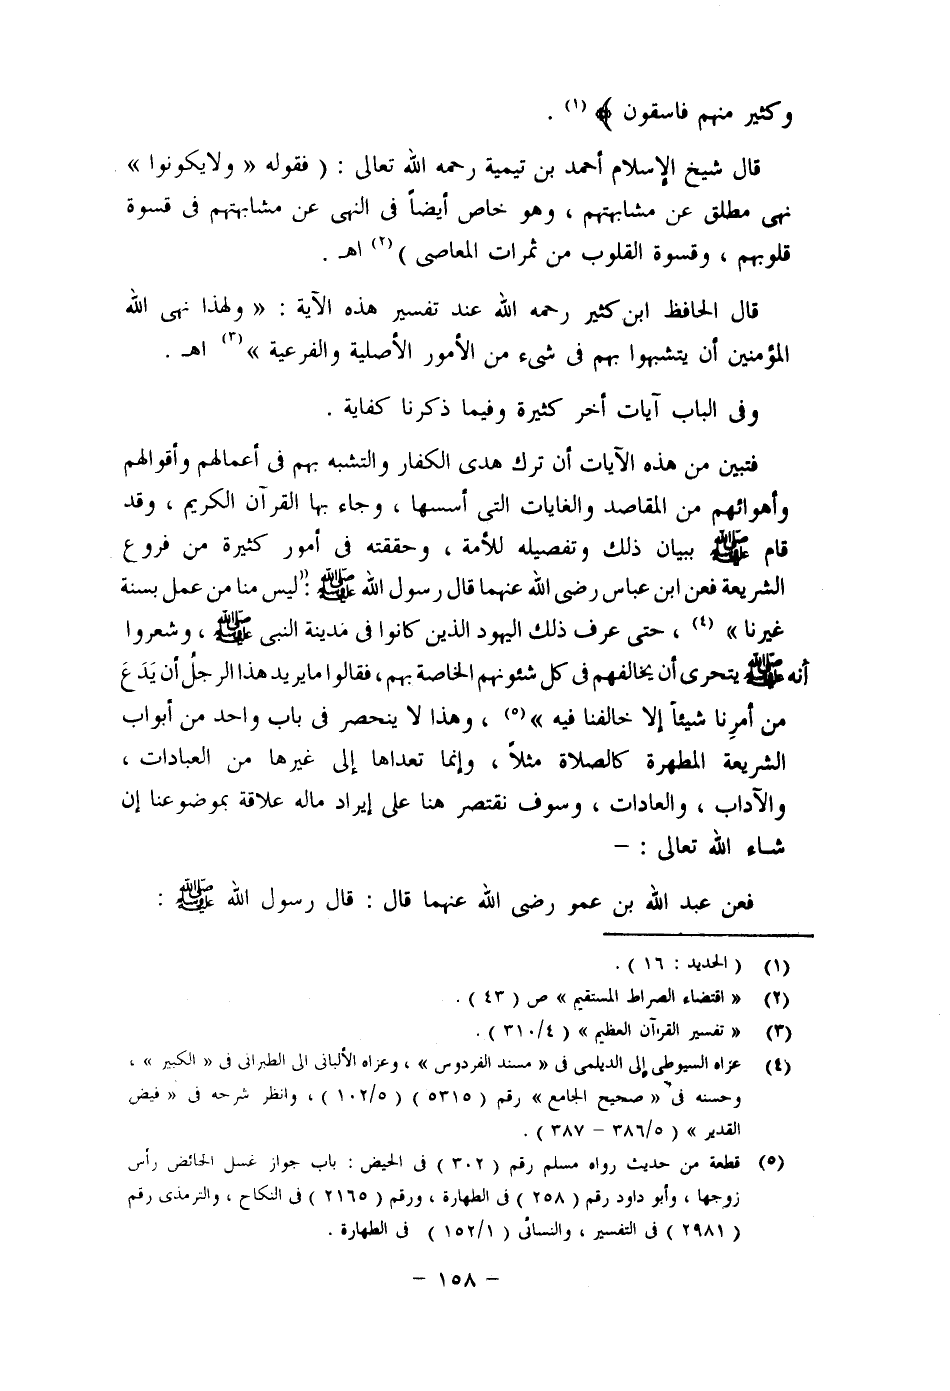 وكثير منهم فاسقون ﴾ (١) .
قال شيخ الإسلام أحمد بن تيمية رحمه الله تعالى : ( فقوله « ولايكونوا »
نهى مطلق عن مشابهتهم ، وهو خاص أيضاً فى النهى عن مشابهتهم فى قسوة
قلوبهم ، وقسوة القلوب من ثمرات المعاصى ) (٢) اهـ .
قال الحافظ ابن كثير رحمه الله عند تفسير هذه الآية : « ولهذا نهى الله
المؤمنين أن يتشبهوا بهم فى شىء من الأمور الأصلية والفرعية » (٣) اهـ .
وفى الباب آيات أخر كثيرة وفيما ذكرنا كفاية .
فتبين من هذه الآيات أن ترك هدى الكفار والتشبه بهم فى أعمالهم وأقوالهم
وأهوائهم من المقاصد والغايات التى أسسها ، وجاء بها القرآن الكريم ، وقد
قام ﷺ ببيان ذلك وتفصيله للأمة ، وحققته فى أمور كثيرة من فروع
الشريعة فعن ابن عباس رضى الله عنهما قال رسول الله ﷺ : «ليس منا من عمل بسنة
غيرنا » (٤) ، حتى عرف ذلك اليهود الذين كانوا فى مدينة النبى ﷺ ، وشعروا
أنه ﷺ يتحرى أن يخالفهم فى كل شئونهم الخاصة بهم ، فقالوا مايريد هذا الرجلُ أن يَدَعَ
من أمرِنا شيئاً إلا خالفنا فيه » (٥) ، وهذا لا ينحصر فى باب واحد من أبواب
الشريعة المطهرة كالصلاة مثلاً ، وإنما تعداها إلى غيرها من العبادات ،
والآداب ، والعادات ، وسوف نقتصر هنا على إيراد ماله علاقة بموضوعنا إن
شاء الله تعالى : –
فعن عبد الله بن عمو رضى الله عنهما قال : قال رسول الله ﷺ :
(١) ( الحديد : ١٦ ) .
(٢) « اقتضاء الصراط المستقيم » ص ( ٤٣ ) .
(٣) « تفسير القرآن العظيم » ( ٣١٠/٤ ) .
(٤) عزاه السيوطى إلى الديلمى فى « مسند الفردوس » ، وعزاه الألبانى الى الطبرانى فى « الكبير » ،
وحسنه فى « صحيح الجامع » رقم ( ٥٣١٥ ) ( ١٠٢/٥ ) ، وانظر شرحه فى « فيض
القدير » ( ٣٨٦/٥ – ٣٨٧ ) .
(٥) قطعة من حديث رواه مسلم رقم ( ٣٠٢ ) فى الحيض : باب جواز غسل الحائض رأس
زوجها ، وأبو داود رقم ( ٢٥٨ ) فى الطهارة ، ورقم ( ٢١٦٥ ) فى النكاح ، والترمذى رقم
( ٢٩٨١ ) فى التفسير ، والنسائى ( ١٥٢/١ ) فى الطهارة .
– ١٥٨ –